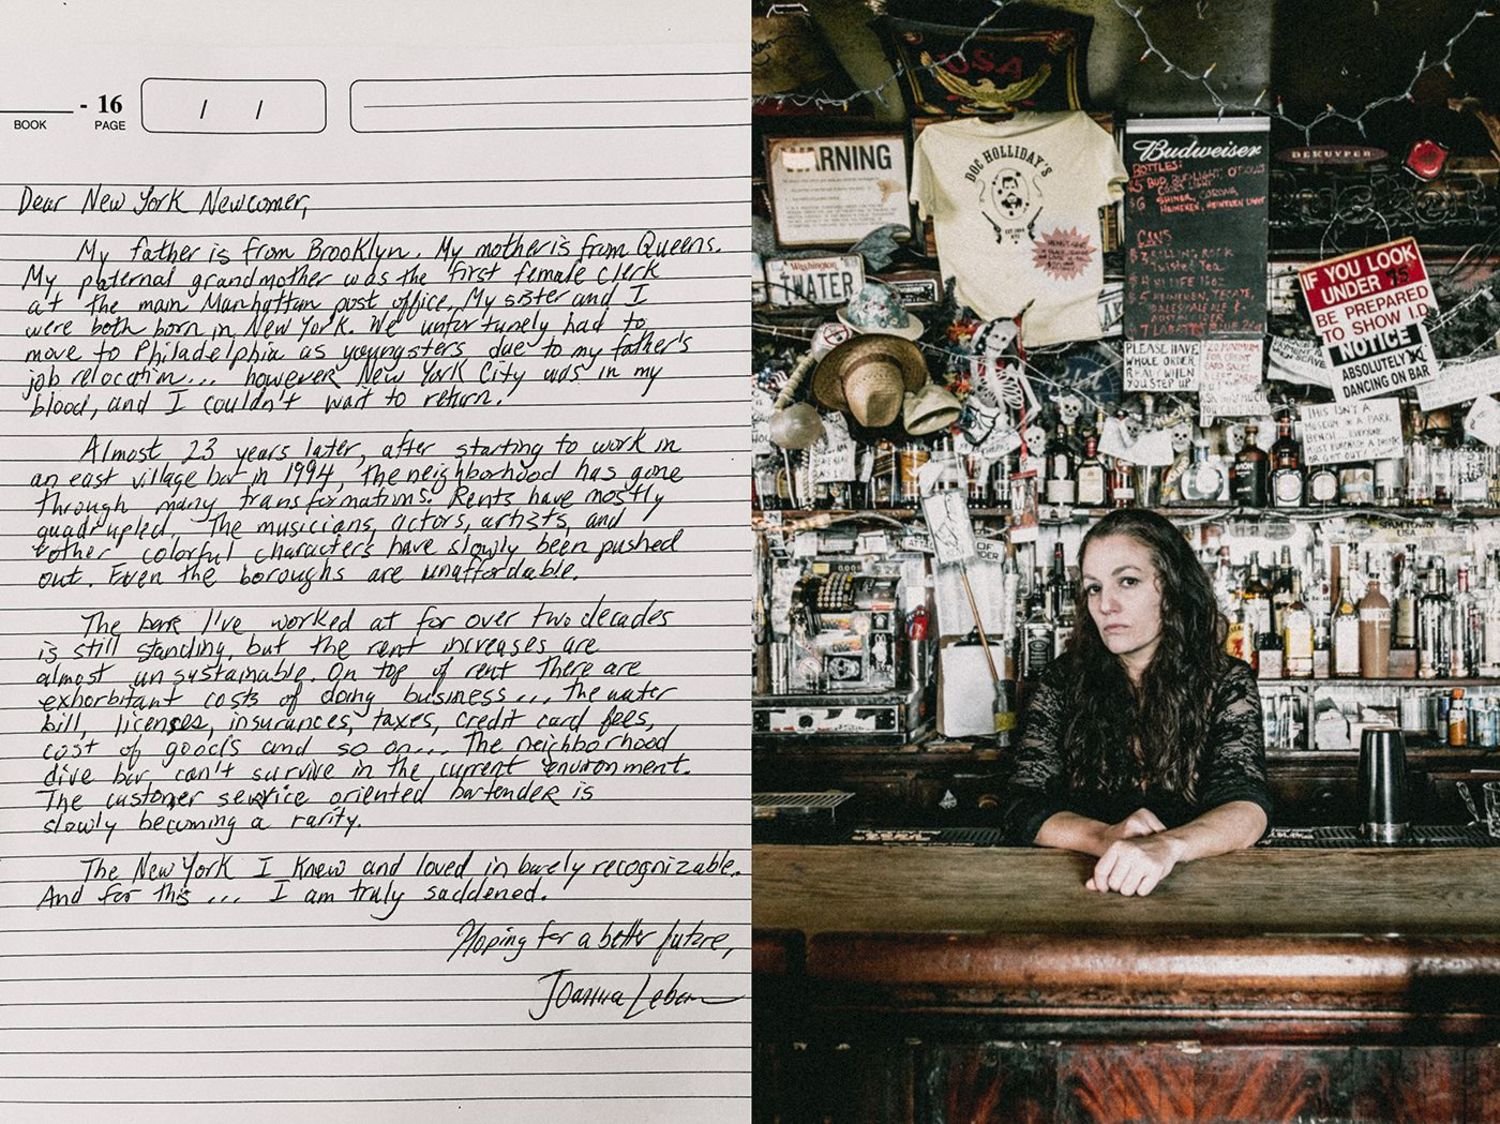 - 16
BOOK
PAGE
/ /
Dear New York Newcomer,
My father is from Brooklyn. My mother is from Queens.
My paternal grandmother was the first female clerk
at the main Manhattan post office. My sister and I
were both born in New York. We unfortunely had to
move to Philadelphia as youngsters, due to my father's
job relocation... however New York City was in my
blood, and I couldn't wait to return.
Almost 23 years later, after starting to work in
an east village bar in 1994, the neighborhood has gone
through many transformations. Rents have mostly
quadrupled. The musicians, actors, artists, and
other colorful characters have slowly been pushed
out. Even the boroughs are unaffordable.
The bar I've worked at for over two decades
is still standing, but the rent increases are
almost unsustainable. On top of rent there are
exhorbitant costs of doing business... The water
bill, licenses, insurances, taxes, credit card fees,
cost of goods and so on... The neighborhood
dive bar, can't survive in the current environment.
The customer service oriented bartender is
slowly becoming a rarity.
The New York I knew and loved, is barely recognizable.
And for this ... I am truly saddened.
Hoping for a better future,
Joanna Leban
USA
WARNING
DOC HOLLIDAY'S
Budweiser
BOTTLES:
$6 SHINER, CORONA
HEINEKEN, HEINEKEN LIGHT
CANS
ROLLING ROCK
Twisted Tea
HI LIFE 16oz
DEKUYPER
Washington
TWATER
IF YOU LOOK
UNDER
BE PREPARED
TO SHOW I.D.
NOTICE
ABSOLUTELY
DANCING ON BAR
PLEASE HAVE
WHOLE ORDER
READY WHEN
YOU STEP UP!
$20 MINIMUM
FOR CREDIT
CARD SALES
THIS ISN'T A
MUSEUM OR A PARK
BENCH